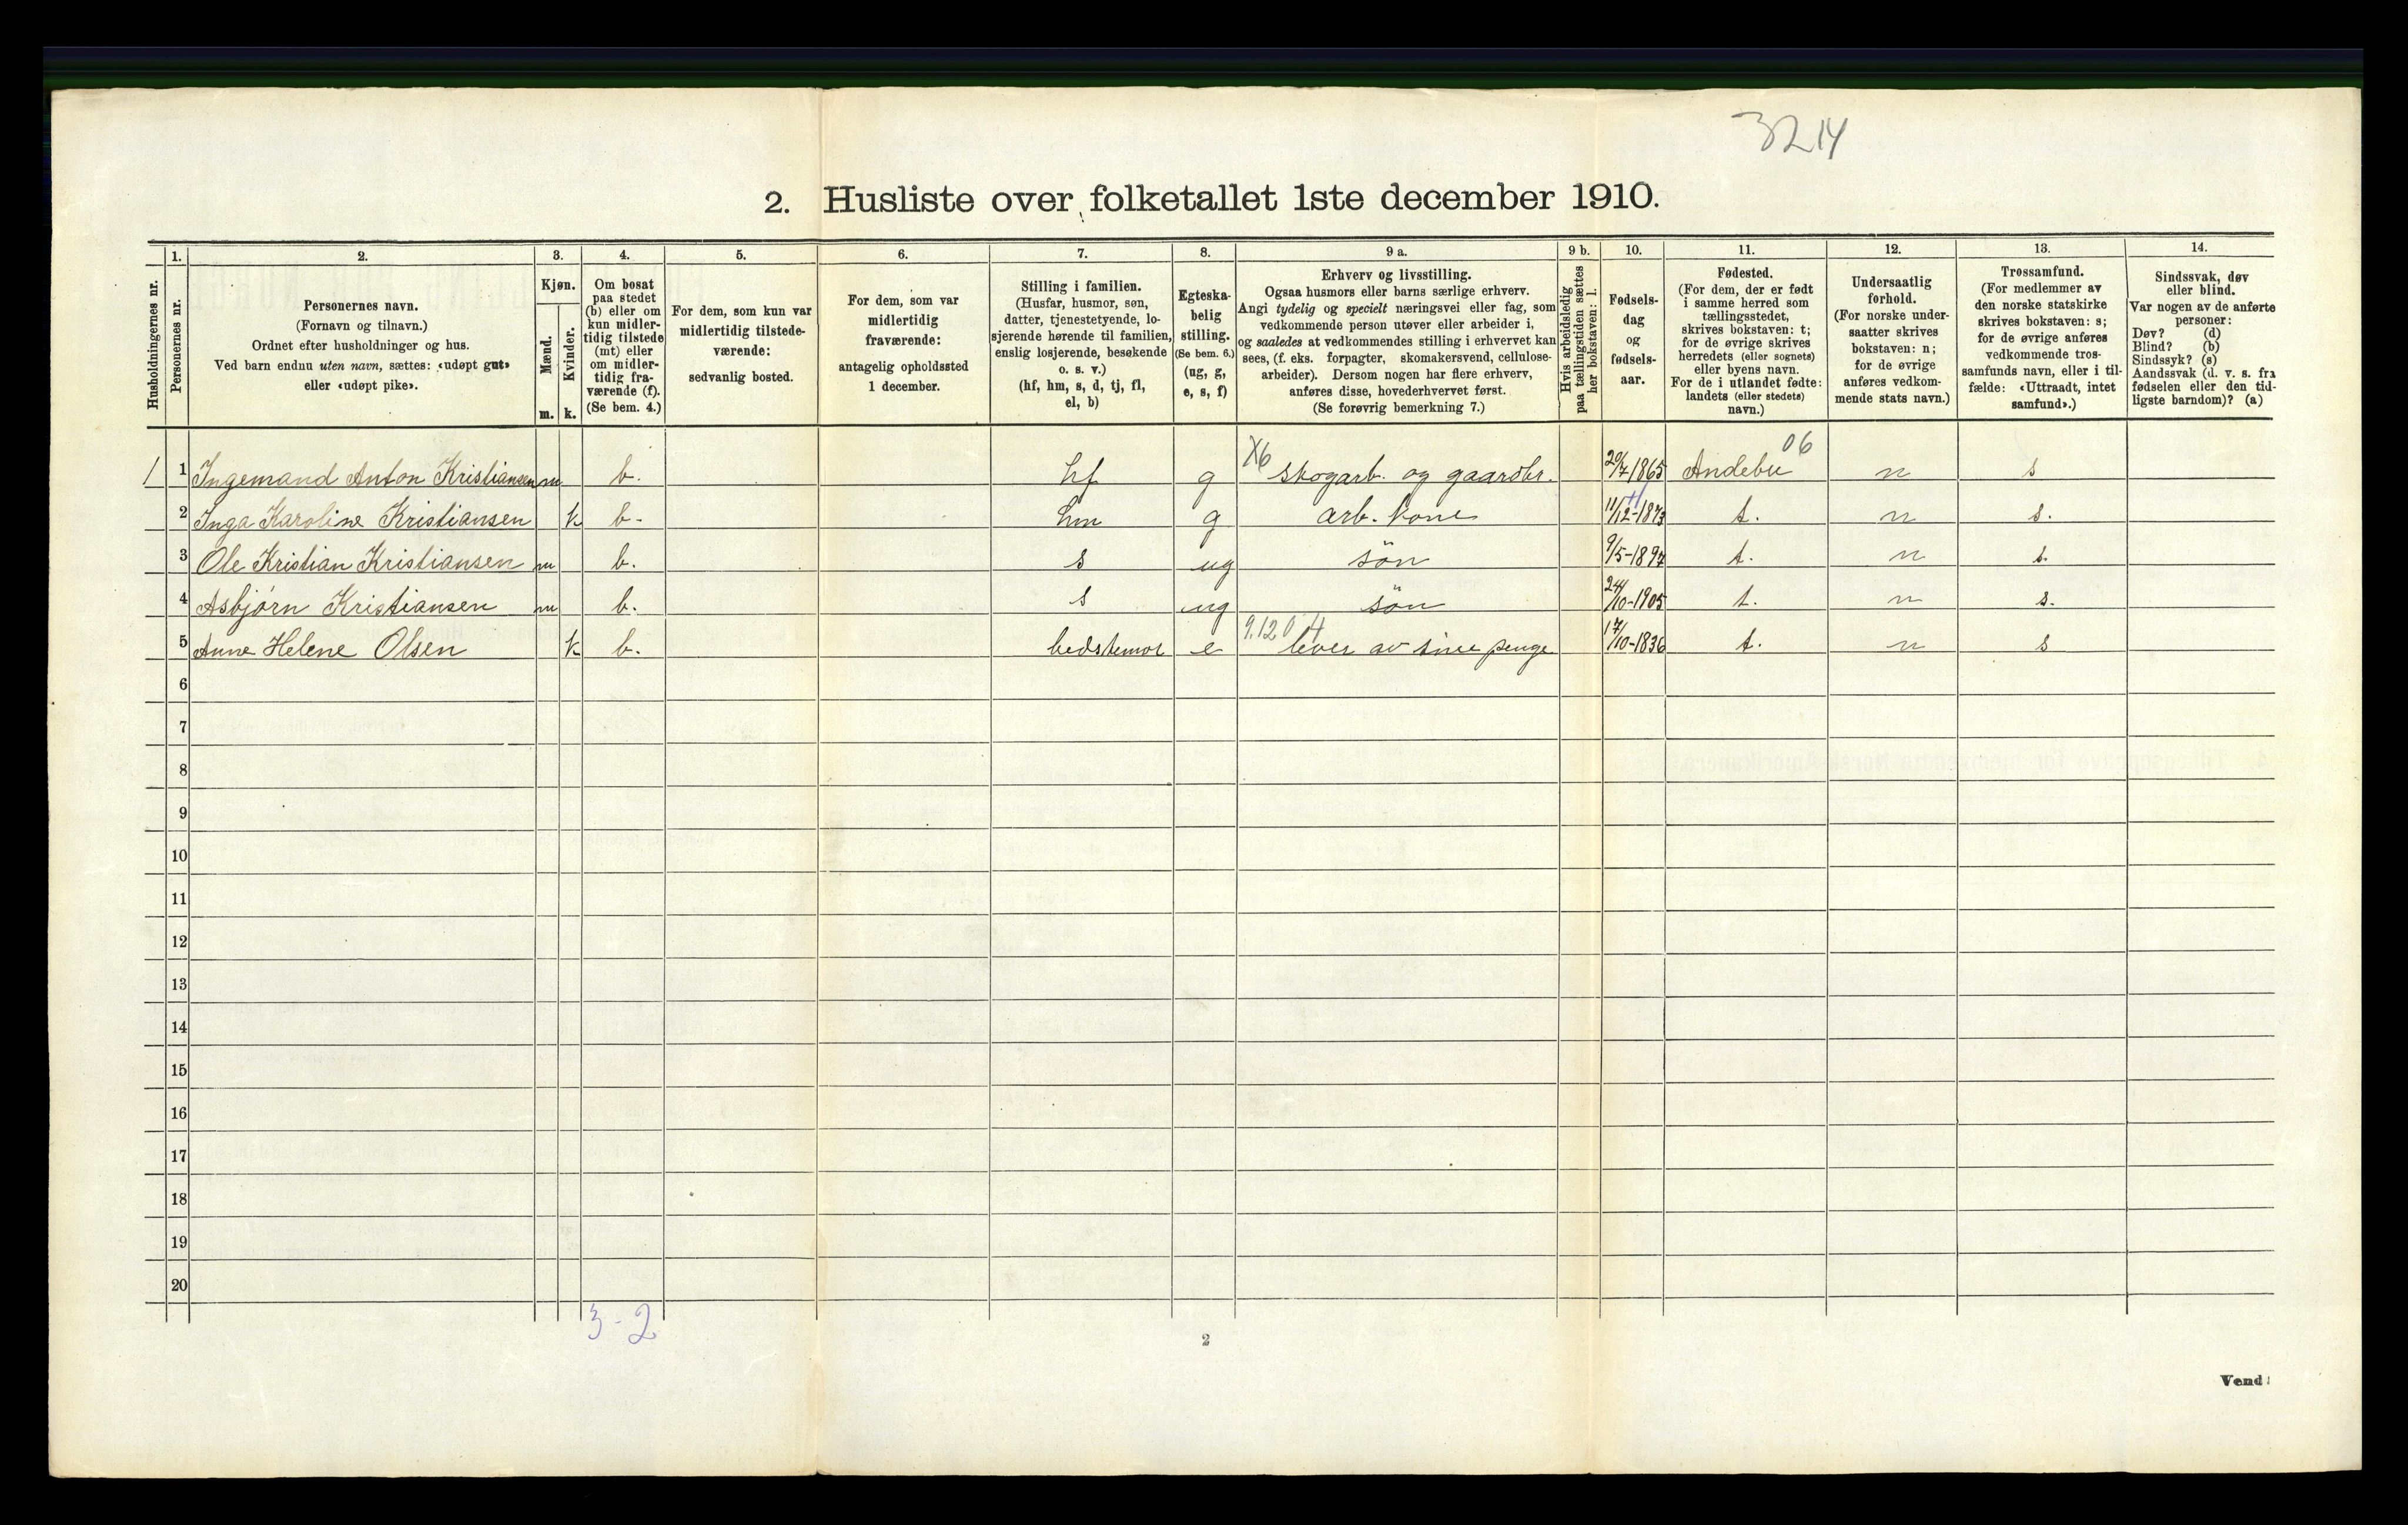 3214
2. Husliste over folketallet 1ste december 1910.
Husholdningernes nr.
1.
Personernes nr.
2.
Personernes navn.
(Fornavn og tilnavn.)
Ordnet efter husholdninger og hus.
Ved barn endnu uten navn, sættes: «udøpt gut»
eller «udøpt pike».
3.
Kjøn.
Mænd.
m.
Kvinder.
k.
4.
Om bosat
paa stedet
(b) eller om
kun midler-
tidig tilstede
(mt) eller
om midler-
tidig fra-
værende (f).
(Se bem. 4.)
5.
For dem, som kun var
midlertidig tilstede-
værende:
sedvanlig bosted.
6.
For dem, som var
midlertidig
fraværende:
antagelig opholdssted
1 december.
7.
Stilling i familien.
(Husfar, husmor, søn,
datter, tjenestetyende, lo-
sjerende hørende til familien,
enslig losjerende, besøkende
o. s. v.)
(hf, hm, s, d, tj, fl,
el, b)
8.
Egteska-
belig
stilling.
(Se bem. 6.)
(ug, g,
e, s, f)
9 a.
Erhverv og livsstilling.
Ogsaa husmors eller barns særlige erhverv.
Angi tydelig og specielt næringsvei eller fag, som
vedkommende person utøver eller arbeider i,
og saaledes at vedkommendes stilling i erhvervet kan
sees, (f. eks. forpagter, skomakersvend, cellulose-
arbeider). Dersom nogen har flere erhverv,
anføres disse, hovederhvervet først.
(Se forøvrig bemerkning 7.)
9 b.
Hvis arbeidsledig
paa tællingstiden sættes
her bokstaven: l.
10.
Fødsels-
dag
og
fødsels-
aar.
11.
Fødested.
(For dem, der er født
i samme herred som
tællingsstedet,
skrives bokstaven: t;
for de øvrige skrives
herredets (eller sognets)
eller byens navn.
For de i utlandet fødte:
landets (eller stedets)
navn.)
12.
Undersaatlig
forhold.
(For norske under-
saatter skrives
bokstaven: n;
for de øvrige
anføres vedkom-
mende stats navn.)
13.
Trossamfund.
(For medlemmer av
den norske statskirke
skrives bokstaven: s;
for de øvrige anføres
vedkommende tros-
samfunds navn, eller i til-
fælde: «Uttraadt, intet
samfund».)
14.
Sindssvak, døv
eller blind.
Var nogen av de anførte
personer:
Døv? (d)
Blind? (b)
Sindssyk? (s)
Aandssvak (d. v. s. fra
fødselen eller den tid-
ligste barndom)? (a)
1 1 Ingemand Anton Kristiansen m b. hf g X6 skogarb. og gaardbr. 20/7 1865 Andebu 06 n s
2 Inga Karoline Kristiansen k b. hm g arb. kone 11/12-1873 t. n s.
3 Ole Kristian Kristiansen m b. s ug søn 9/5-1897 t. n s.
4 Asbjørn Kristiansen m b. s ug søn 24/10-1905 t. n s.
5 Anne Helene Olsen k b. bedstemor e 9.120 4 lever av sine penge 17/10-1836 t. n s
6
7
8
9
10
11
12
13
14
15
16
17
18
19
20
3-2
2
Vend!